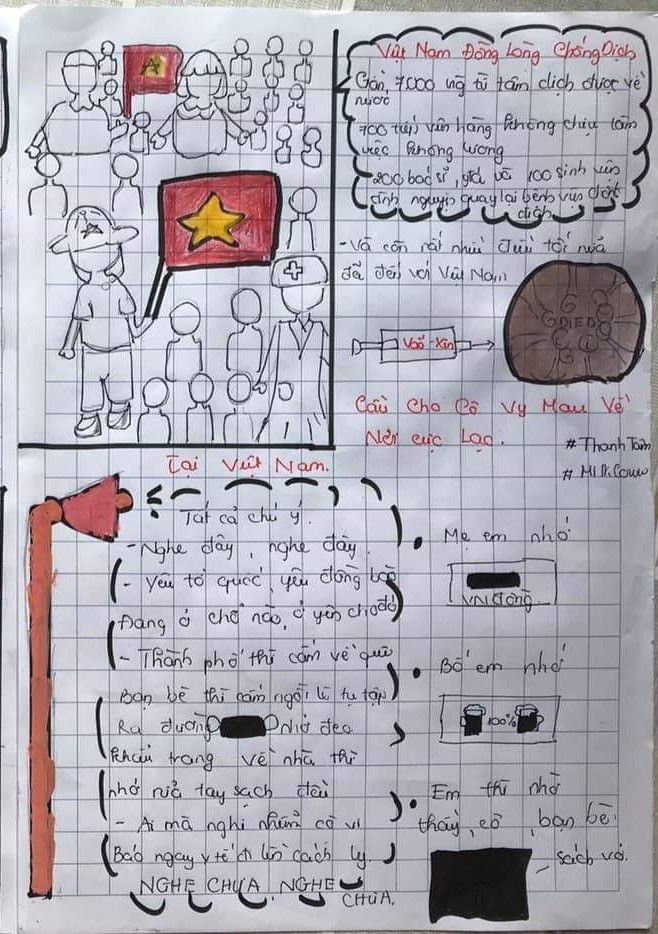 Việt Nam Đồng Lòng Chống Dịch
Gần 7000 ng từ tâm dịch được về
nước
700 tiếp viên hàng không chịu làm
việc không lương
- 200 bác sĩ, già và 100 sinh viên
tình nguyện quay lại bệnh viện dập
dịch
- Và còn rất nhiều điều tốt nữa
đã đến với Việt Nam
DIED
Vắc-Xin
Cầu Cho Cô Vy Mau Về
Nơi cực Lạc.
# Thanh Tâm
Tại Việt Nam.
Tất cả chú ý.
- Nghe đây, nghe đây
- Yêu tổ quốc, yêu đồng bào
Đang ở chỗ nào, ở yên chỗ đó
- Thành phố thì cấm về quê
Bạn bè thì cấm ngồi lì tụ tập
Ra đường Nhớ đeo
khẩu trang về nhà thì
nhớ rửa tay sạch đều
- Ai mà nghi nhiễm cô vi
Báo ngay y tế đi liền cách ly.
NGHE CHƯA, NGHE
CHƯA.
• Mẹ em nhớ
VN đồng
• Bố em nhớ
100%
• Em thì nhớ
thầy, cô, bạn bè.
- sách vở.